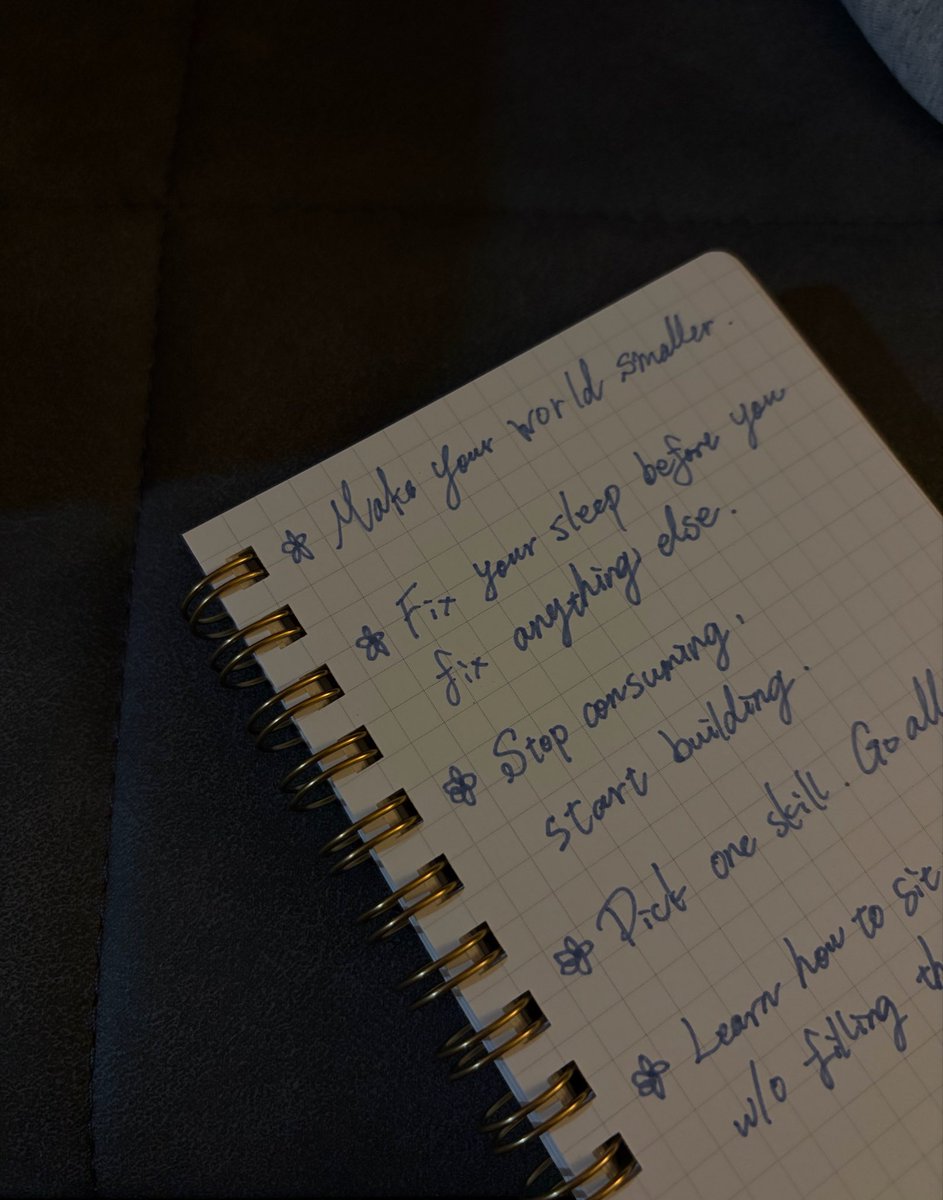 Make your world smaller.
Fix your sleep before you
fix anything else.
Stop consuming,
start building.
Pick one skill. Go all
Learn how to sit
w/o filling th